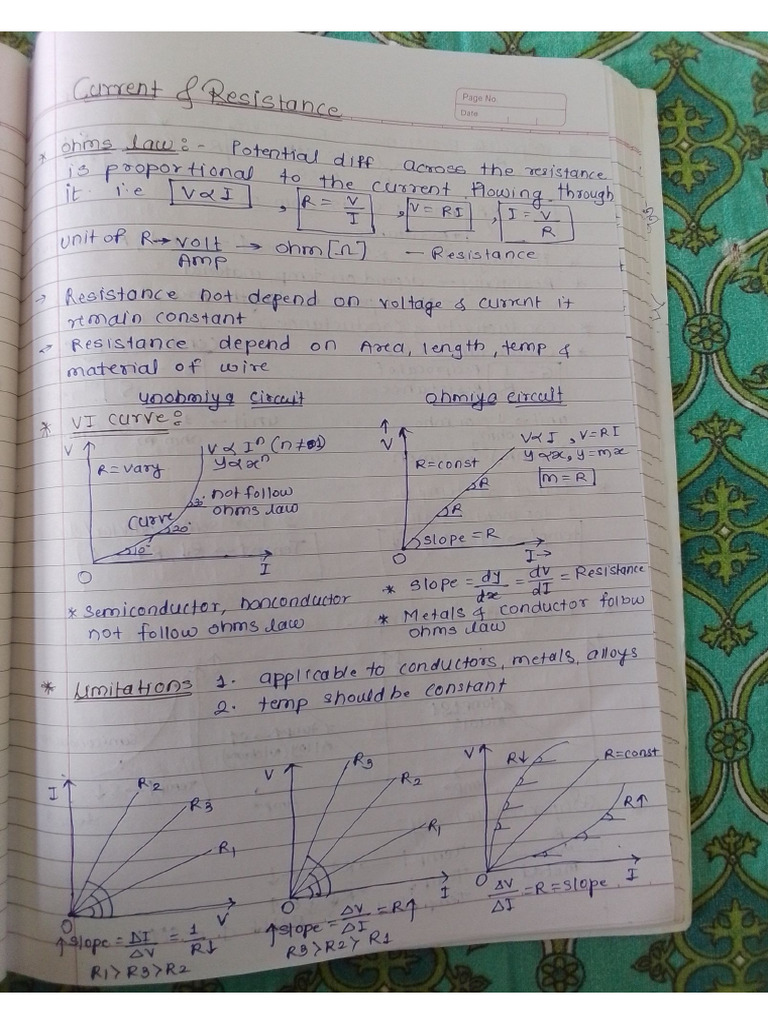 Current & Resistance
Page No.
Date
* ohms law:- Potential diff across the resistance
is proportional to the current flowing through
it i.e V∝I , R = V/I , V = RI , I = V/R
unit of R → volt/AMP → ohm [Ω] — Resistance
→ Resistance not depend on voltage & current it
remain constant
→ Resistance depend on Area, length, temp &
material of wire
unohmiya circuit ohmiya circuit
* VI curve:
V
R = vary
V∝Iⁿ (n≠1)
y∝xⁿ
not follow
ohms law
curve
10°
20°
O
I
V
R=const
V∝I , V=RI
y∝x, y=mx
m = R
R
R
slope = R
O
I→
* semiconductor, nonconductor
not follow ohms law
* slope = dy/dx = dV/dI = Resistance
* Metals & conductor follow
ohms law
* Limitations 1. applicable to conductors, metals, alloys
2. temp should be constant
I
R2
R3
R1
O
V
↑slope = ΔI/ΔV = 1/R↓
R1 > R3 > R2
V
R3
R2
R1
O
I
↑slope = ΔV/ΔI = R↑
R3 > R2 > R1
V
R↓
R=const
R↑
O
I
ΔV/ΔI = R = slope